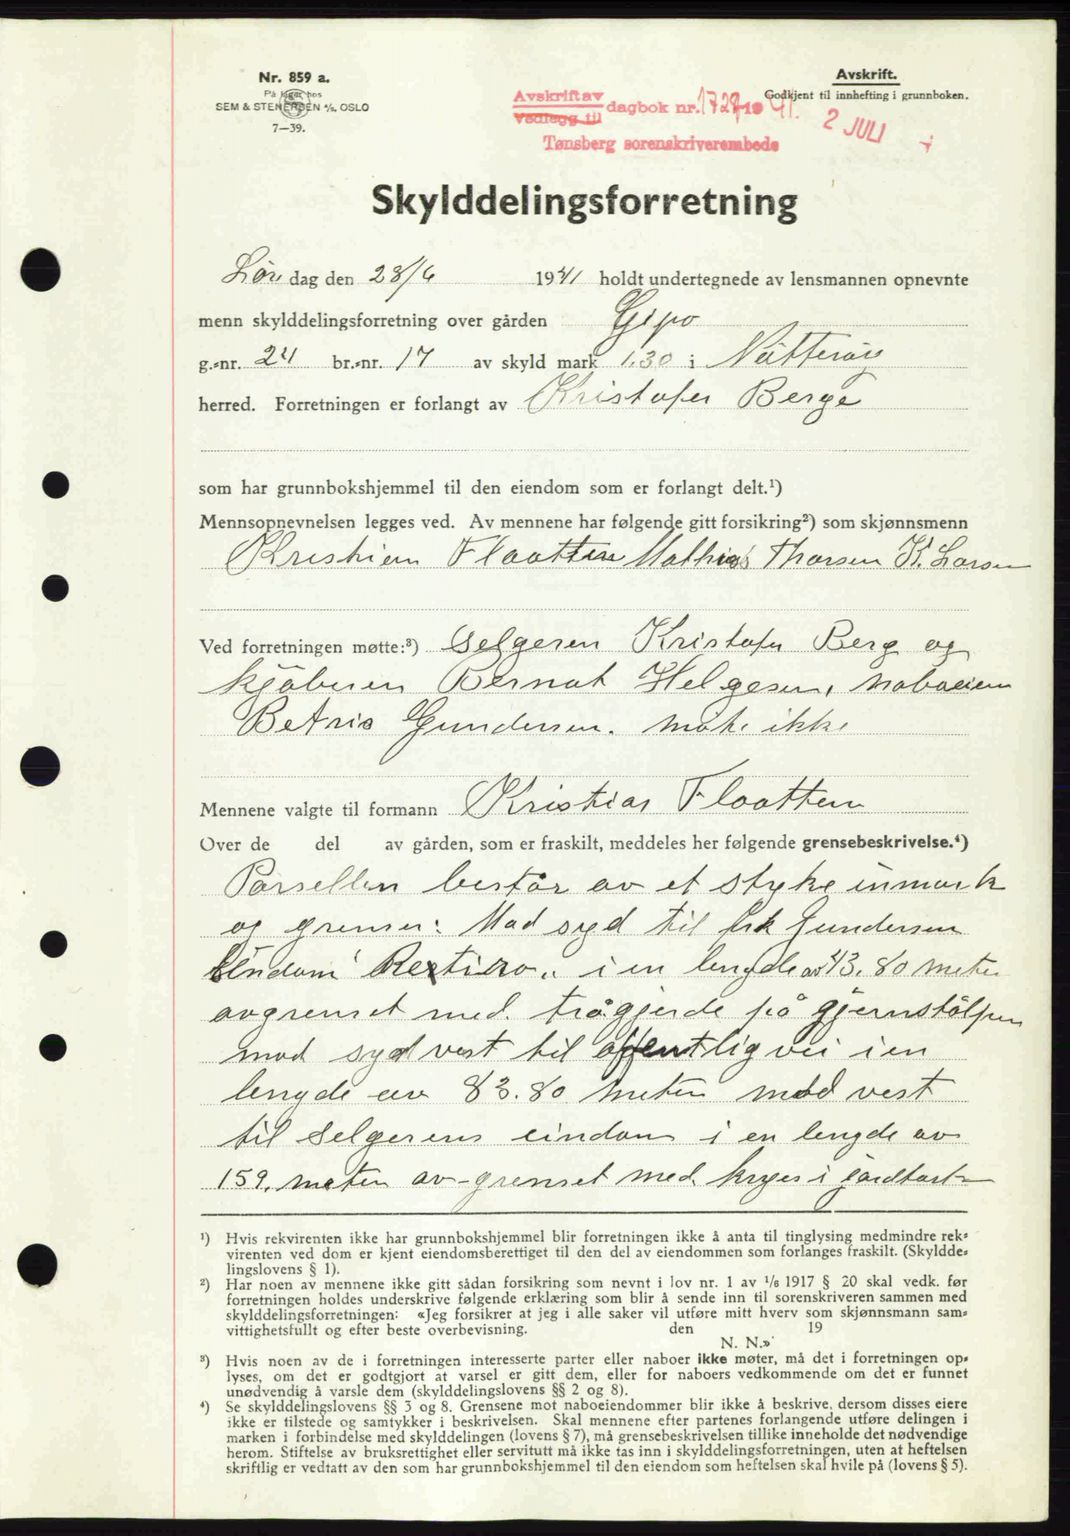 Nr. 859 a.
På lager hos
SEM & STENERSEN A/S, OSLO
7—39.
Avskrift.
Godkjent til innhefting i grunnboken.
Avskrift av
Vedlegg til
dagbok nr. 1727 1941.
2 JULI
Tønsberg sorenskriverembede
Skylddelingsforretning
Lør dag den 28/6 1941 holdt undertegnede av lensmannen opnevnte
menn skylddelingsforretning over gården Gipø
g.-nr. 24 br.-nr. 17 av skyld mark 1.30 i Nøtterøy
herred. Forretningen er forlangt av Kristofer Berge
som har grunnbokshjemmel til den eiendom som er forlangt delt.¹)
Mennsopnevnelsen legges ved. Av mennene har følgende gitt forsikring²) som skjønnsmenn
Kristian Flaatten Mathias Thorsen K. Larsen
Ved forretningen møtte:³) Selgeren Kristofer Berg og
kjøberen Bernat Helgesen, naboeien
Betris Gundersen. møte ikke
Mennene valgte til formann Kristian Flaatten
Over de del av gården, som er fraskilt, meddeles her følgende grensebeskrivelse.⁴)
Parsellen består av et styke inmark
og grenser: Mod syd til frk Gundersen
Eindom i en lengde av 43.80 meter
avgrenset med trågjerde på gjernstolper
mod sydvest til offentlig vei i en
lengde av 83.80 meter mod vest
til Selgerens eindom i en lengde av
159. meter av-grenset med kryss i jordfast
¹) Hvis rekvirenten ikke har grunnbokshjemmel blir forretningen ikke å anta til tinglysing medmindre rek-
virenten ved dom er kjent eiendomsberettiget til den del av eiendommen som forlanges fraskilt. (Skyldde-
lingslovens § 1).
²) Har noen av mennene ikke gitt sådan forsikring som nevnt i lov nr. 1 av 1/6 1917 § 20 skal vedk. før
forretningen holdes underskrive følgende erklæring som blir å sende inn til sorenskriveren sammen med
skylddelingsforretningen: «Jeg forsikrer at jeg i alle saker vil utføre mitt hverv som skjønnsmann sam-
vittighetsfullt og efter beste overbevisning. den 19
N. N.»
³) Hvis noen av de i forretningen interesserte parter eller naboer ikke møter, må det i forretningen op-
lyses, om det er godtgjort at varsel er gitt dem, eller for naboers vedkommende om det er funnet
unødvendig å varsle dem (skylddelingslovens §§ 2 og 8).
⁴) Se skylddelingslovens §§ 3 og 8. Grensene mot naboeiendommer blir ikke å beskrive, dersom disses eiere
ikke er tilstede og samtykker i beskrivelsen. Skal mennene efter partenes forlangende utføre delingen i
marken i forbindelse med skylddelingen (lovens § 7), må grensebeskrivelsen tillike inneholde det nødvendige
herom. Stiftelse av bruksrettighet eller servitutt må ikke tas inn i skylddelingsforretningen, uten at heftelsen
skriftlig er vedtatt av den som har grunnbokshjemmel til den eiendom som heftelsen skal hvile på (lovens § 5).